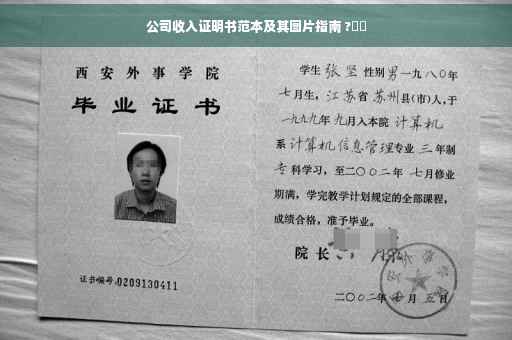 公司收入证明书范本及其图片指南 ?
西安外事学院
毕业证书
证书编号:0209130411
学生 张坚 性别 男 一九八〇年
七月生，江苏省 苏州县(市)人，于
一九九九年 九月入本院 计算机
系 计算机信息管理专业 三 年制
专科学习，至二〇〇二年 七月修业
期满，学完教学计划规定的全部课程，
成绩合格，准予毕业。
院长
二〇〇二年 七月 五日